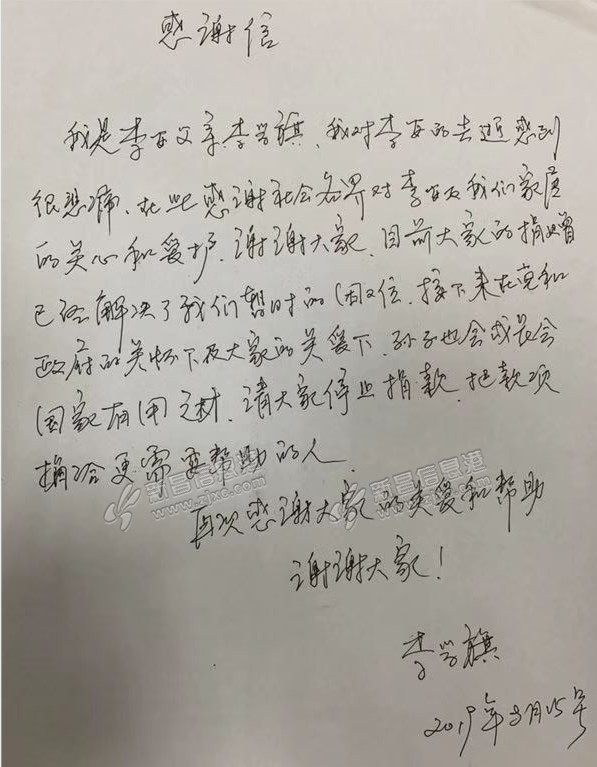 感谢信
我是李百父亲李学旗、我对李百的去逝感到
很悲痛、在此感谢社会各界对李百及我们家庭
的关心和爱护、谢谢大家、目前大家的捐赠
已经解决了我们暂时的困难、接下来在党和
政府的关怀下及大家的关爱下、孙子也会成长会
国家有用之材、请大家停止捐款、把款项
捐给更需要帮助的人、
再次感谢大家的关爱和帮助
谢谢大家！
李学旗
2019年3月15号
新昌信息港
www.zjxc.com
新昌信息港
www.zjxc.com